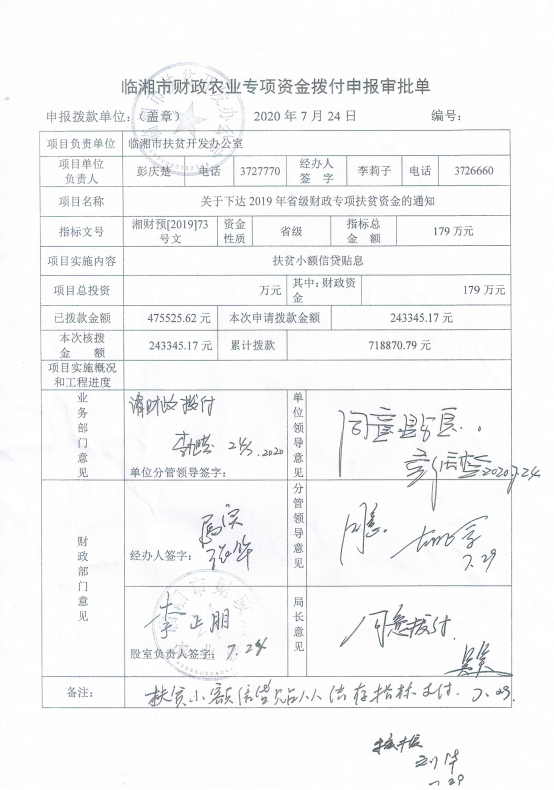 临湘市财政农业专项资金拨付申报审批单
申报拨款单位：（盖章） 2020 年 7 月 24 日 编号：
项目负责单位 临湘市扶贫开发办公室
项目单位负责人 彭庆楚 电话 3727770 经办人签 字 李莉子 电话 3726660
项目名称 关于下达 2019 年省级财政专项扶贫资金的通知
指标文号 湘财预[2019]73号文 资金性质 省级 指标总金 额 179 万元
项目实施内容 扶贫小额信贷贴息
项目总投资 万元 其中：财政资金 179 万元
已拨款金额 475525.62 元 本次申请拨款金额 243345.17 元
本次核拨金 额 243345.17 元 累计拨款 718870.79 元
项目实施概况和工程进度
业务部门意见 请财政拨付 2020 单位分管领导签字：
单位领导意见 同意 2020.7.24
财政部门意见
经办人签字：
分管领导意见 同意 7.29
李正朋
股室负责人签字：7.24
局长意见 同意拨付.
备注： 扶贫小额信贷贴 结存指标支付. 7.29.